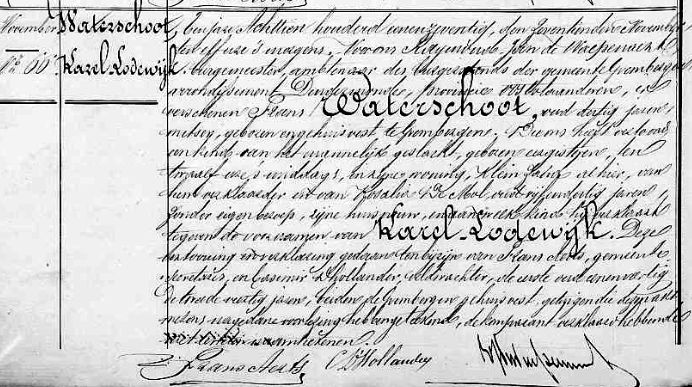 November Waterschoot,
Karel Lodewijk.
Ten jare achttien honderd eenenzeventig, den zeventienden November
ten elf ure 's morgens. Voor ons Ridder Jan de
burgemeester, ambtenaar des burgerstands der gemeente Grembergen
arrondissement Dendermonde, provincie Oostvlaanderen, is
verschenen Frans Waterschoot, oud dertig jaren
metser, geboren en gehuisvest te Grembergen. Diens heeft vertoond
een kind van het mannelijk geslacht, geboren eergisteren, ten
twaalf ure 's middags, in zijne woning, Klein Zand alhier, van
hem verklaarder en van Rosalia De Mol, oud vijfendertig jaren
zonder eigen beroep, zijne huisvrouw, en aan welk kind hij verklaart
te geven de voornamen van Karel Lodewijk. Deze
vertooning en verklaring gedaan ten bijzijn van Frans Aerts, gemeente
secretaris, en Casimir D'hollander, veldwachter, de eerste oud eenenveertig
de tweede veertig jaren, beiden te Grembergen gehuisvest, getuigen die deze akte
met ons na gedane voorlezing hebben geteekend, de komparant verklaard hebbende
niet
Frans Aerts C D'Hollander